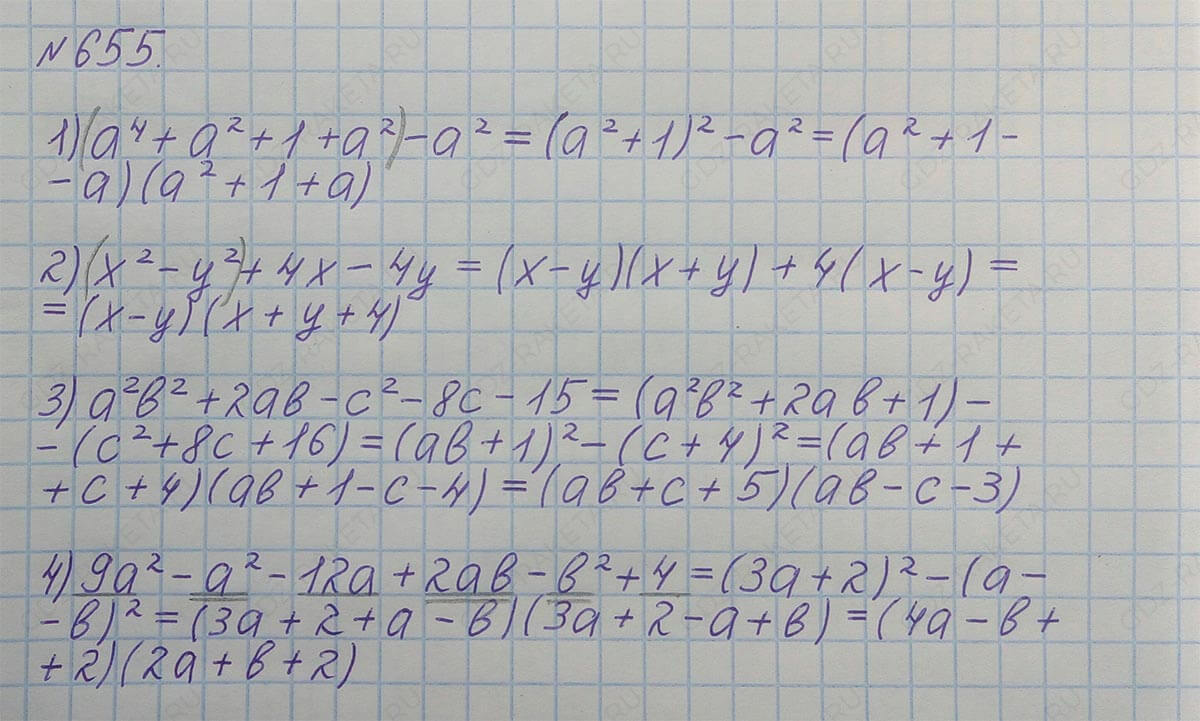 №655.
1) (a⁴ + a² + 1 + a²) - a² = (a² + 1)² - a² = (a² + 1 -
- a) (a² + 1 + a)
2) (x² - y²) + 4x - 4y = (x - y)(x + y) + 4(x - y) =
= (x - y) (x + y + 4)
3) a²в² + 2aв - c² - 8c - 15 = (a²в² + 2aв + 1) -
- (c² + 8c + 16) = (aв + 1)² - (c + 4)² = (aв + 1 +
+ c + 4) (aв + 1 - c - 4) = (aв + c + 5) (aв - c - 3)
4) 9a² - a² - 12a + 2aв - в² + 4 = (3a + 2)² - (a -
- в)² = (3a + 2 + a - в) (3a + 2 - a + в) = (4a - в +
+ 2) (2a + в + 2)
GDZ-RAKETA.RU